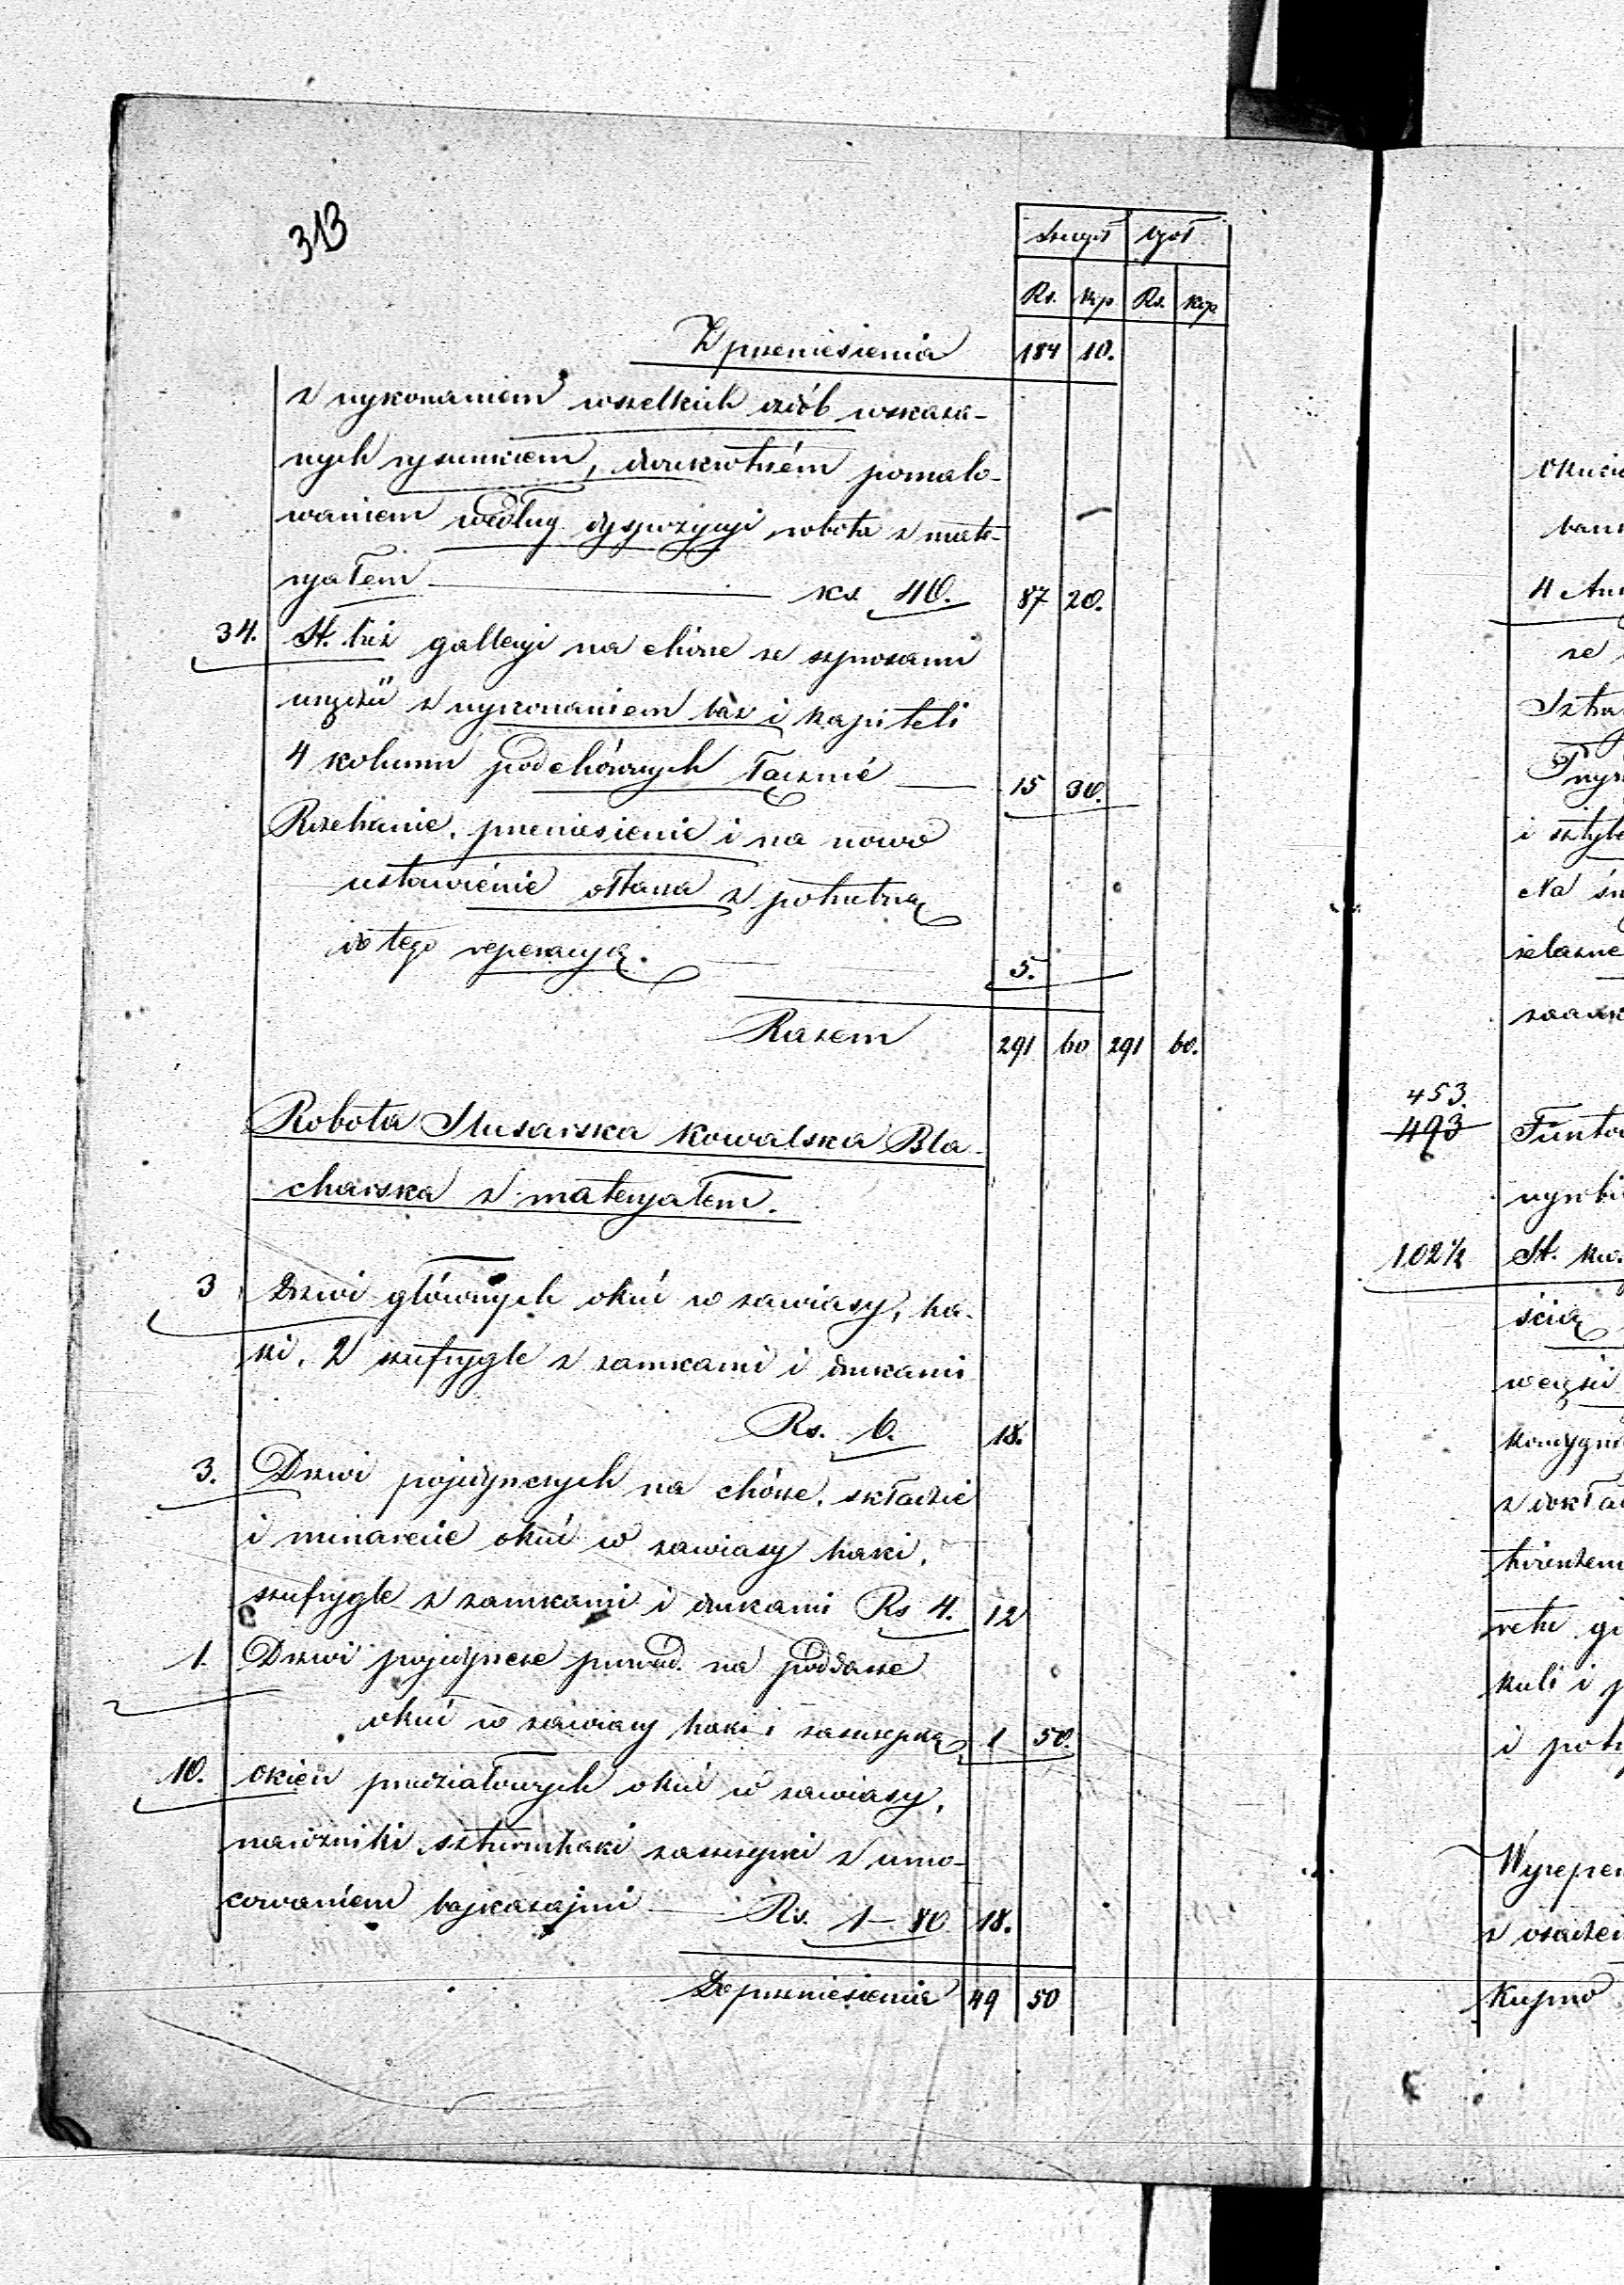 313
Szczegół ogół
Rs. kop Rs. kop
Z przeniesienia 184 10.
z wykonaniem wszelkich ozdób wskaza-
nych rysunkiem, dwukrotném pomalo-
waniem według dyspozycyi robota z mate-
ryałem ks. 40. 87 20.
34. St. bież galleryi na chórze ze szprosami
z wykonaniem baz i kapiteli
4 kolumn podchórnych łącznie 15 30.
Rozebranie, przeniesienie i na nowo
ustawienie ołtarza z potrzebną
do tego reperacyą. 5.
Razem 291 60 291 60.
Robota Slusarska Kowalska Bla-
charska z materyałem.
3 Drzwi głównych okuć w zawiasy, ha-
ki, 2 szufrygle z zamkami i drukami
Rs. 6. 18.
3. Drzwi pojedynczych na chórze, składzie
i minarecie okuć w zawiasy haki,
szufrygle z zamkami i drukami Rs 4. 12
1. Drzwi pojedyncze prowad. na poddasze
okuć w zawiasy haki i zaszczepkę 1 50.
10. okien przedziałowych okuć w zawiasy,
narożniki szturmhaki zaszczepki z umo-
cowaniem bajkazajmi Rs. 1-80 18.
Do przeniesienia 49 50
okucie
4
ze
i
Na
żelazne
453.
493
102½ St. kw.
ścią
i
kuli i
i
z
Kupno